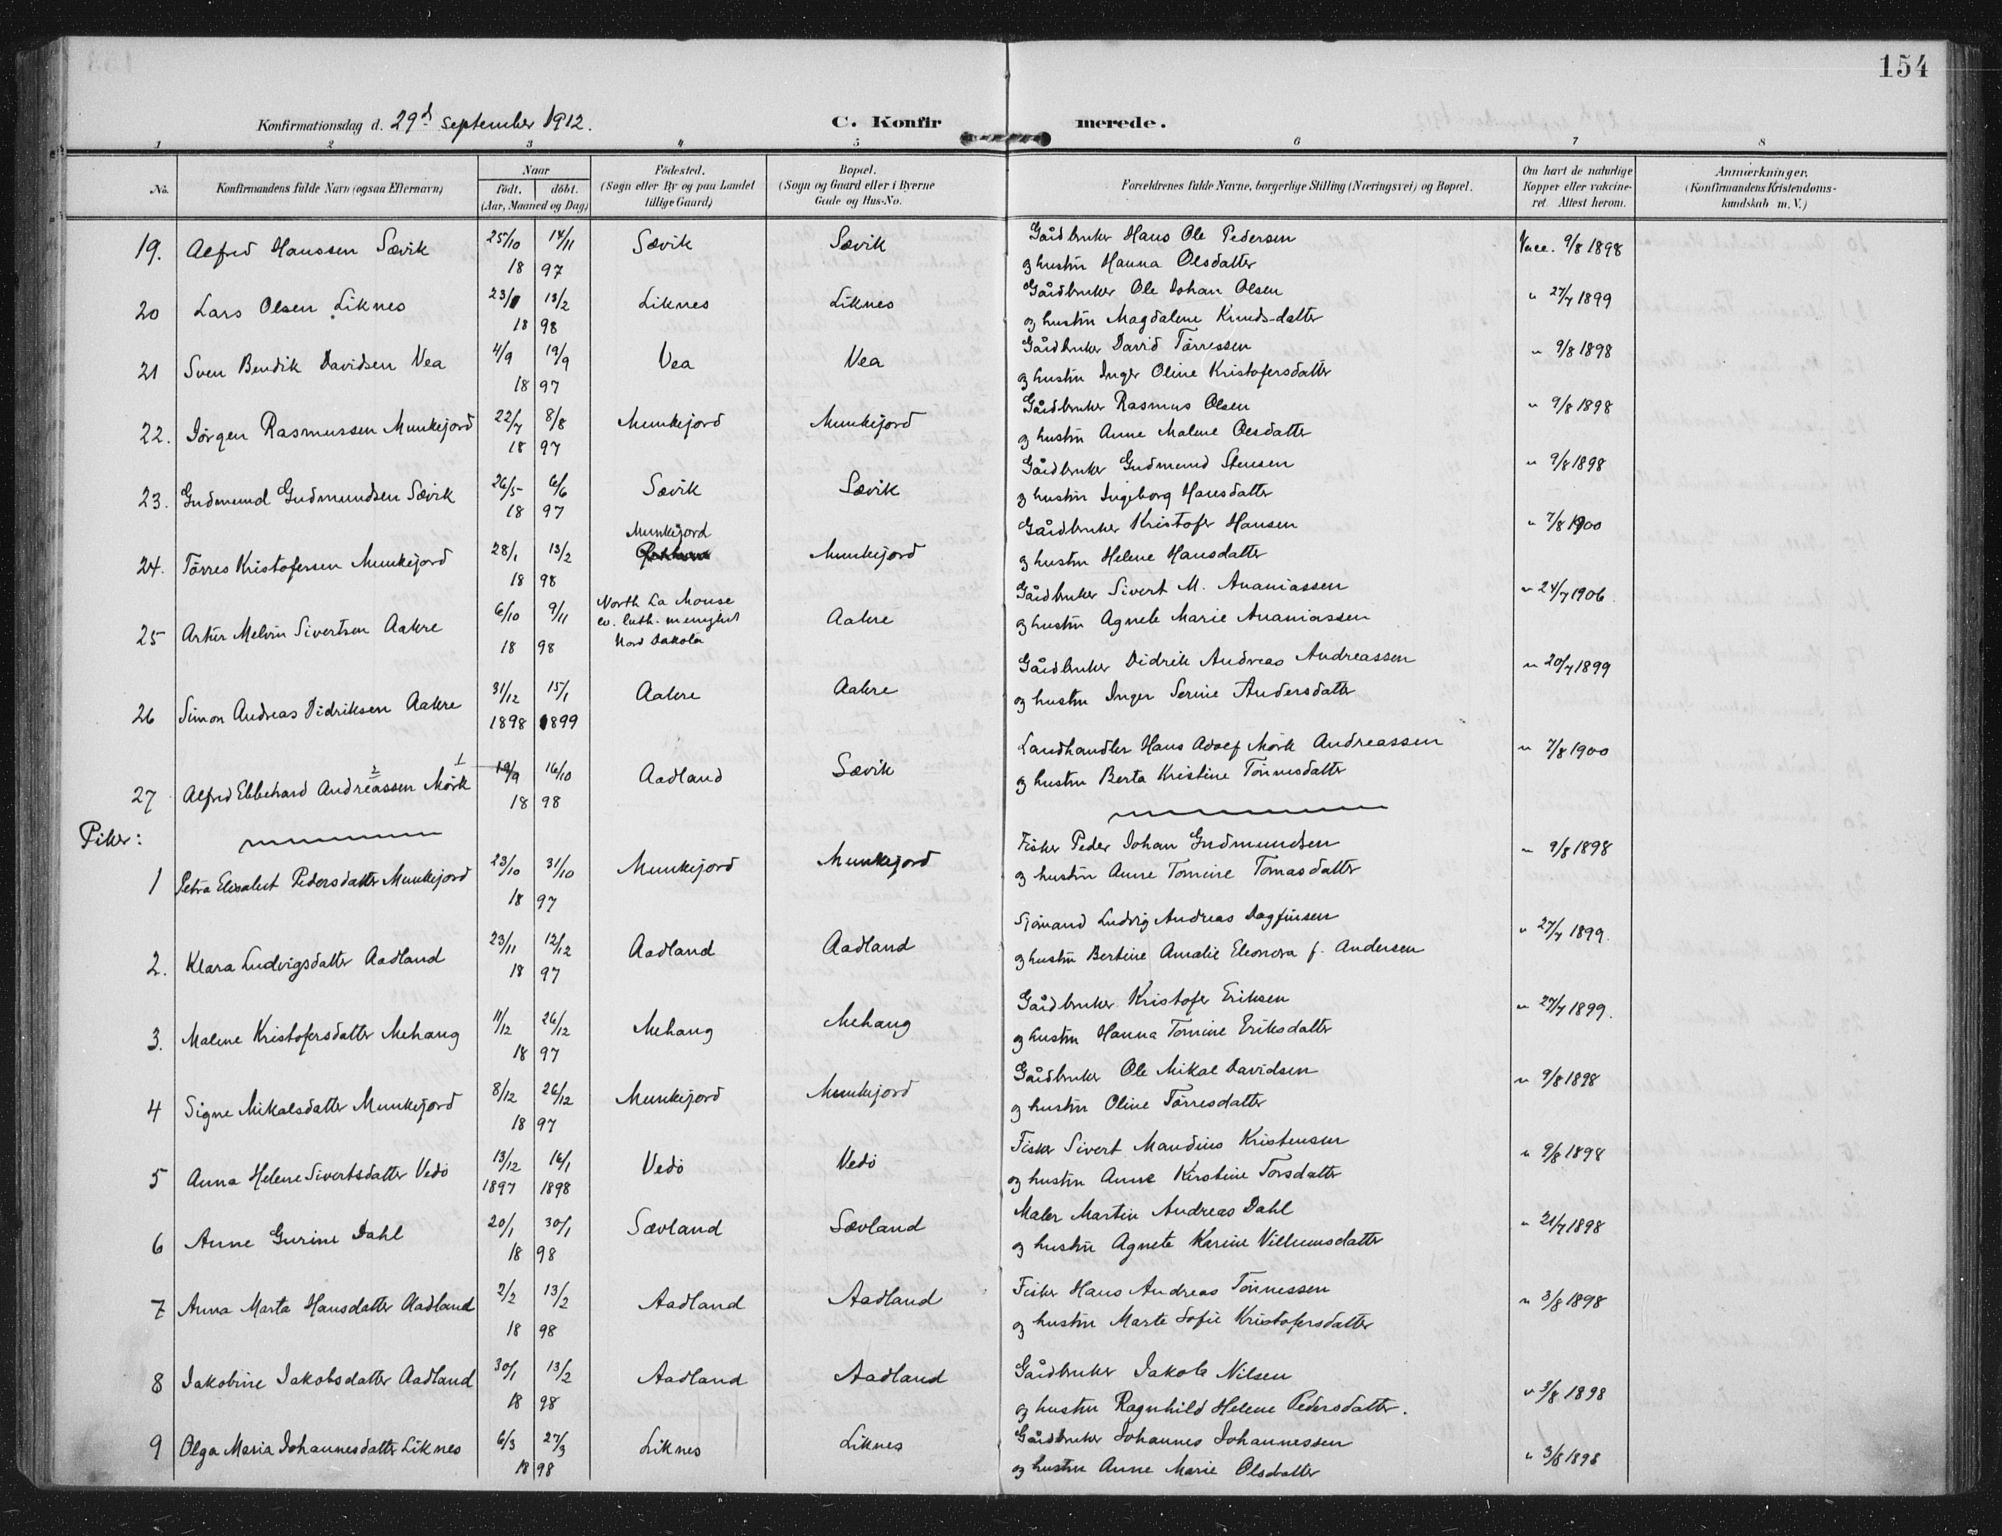 154
Konfirmationsdag d. 29d september 1912.
C. Konfirmerede.
1 2 3 4 5 6 7 8
No. Konfirmandens fulde Navn (ogsaa Efternavn) Naar födt. döbt. (Aar, Maaned og Dag) Födested. (Sogn eller By og paa Landet tillige Gaard) Bopæl. (Sogn og Gaard eller i Byerne Gade og Hus-No. Forældrenes fulde Navne, borgerlige Stilling (Næringsvei) og Bopæl. Om havt de naturlige Kopper eller vakcineret. Attest herom. Anmærkninger. (Konfirmandens Kristendomskundskab m. V.)
19. Alfred Hanssen Sævik 25/10 14/11 Sævik Sævik Gårdbruker Hans Ole Pedersen Vacc. 9/8 1898
18 97 og hustru Hanna Olsdatter
20 Lars Olsen Liknes 23/1 13/2 Liknes Liknes Gårdbruker Ole Johan Olsen " 27/7 1899
18 98 og hustru Magdalene Knuds-datter
21 Sven Bendik Davidsen Vea 4/9 19/9 Vea Vea Gårdbruker David Tørressen " 9/8 1898
18 97 og hustru Inger Oline Kristofersdatter
22. Jørgen Rasmussen Munkejord 22/7 8/8 Munkejord Munkejord Gårdbruker Rasmus Olsen " 9/8 1898
18 97 og hustru Anne Malene Olsdatter
23. Gudmund Gudmundsen Sævik 26/5 6/6 Sævik Sævik Gårdbruker Gudmund Stensen " 9/8 1898
18 97 og hustru Ingeborg Hansdatter
24. Tørres Kristofersen Munkejord 28/1 13/2 Munkejord Munkejord Gårdbruker Kristofer Hansen " 7/8 1900
18 98 og hustru Helene Hansdatter
25 Artur Melvin Sivertsen Aakre 6/10 9/11 North La Mouse ev. luth. menighet Nord Dakota Aakre Gårdbruker Sivert M. Ananiassen " 24/7 1906
18 98 og hustru Agnete Marie Ananiassen
26 Simon Andreas Didriksen Aakre 31/12 15/1 Aakre Aakre Gårdbruker Didrik Andreas Andreassen " 20/7 1899
1898 1899 og hustru Inger Serine Andersdatter
27 Alfred Ebbehard Andreassen 2 Mørk 1 19/9 16/10 Aadland Sævik Landhandler Hans Adolf Mørk Andreassen " 7/8 1900
18 98 og hustru Berta Kristine Tönnesdatter
Piker:
1 Petra Elisabet Pedersdatter Munkejord 23/10 31/10 Munkejord Munkejord Fisker Peder Johan Gudmundsen " 9/8 1898
18 97 og hustru Anne Tomine Tomasdatter
2. Klara Ludvigsdatter Aadland 23/11 12/12 Aadland Aadland Sjömand Ludvig Andreas Dagfinsen " 27/7 1899.
18 97 og hustru Bertine Amalie Eleonora f. Andersen
3. Malene Kristofersdatter Mehaug 11/12 26/12 Mehaug Mehaug Gårdbruker Kristofer Eriksen " 27/7 1899.
18 97 og hustru Hanna Tomine Eriksdatter
4 Signe Mikalsdatter Munkejord 8/12 26/12 Munkejord Munkejord Gårdbruker Ole Mikal Davidsen " 9/8 1898
18 97 og hustru Oline Tørresdatter
5 Anna Helene Sivertsdatter Vedö 13/12 16/1 Vedö Vedö Fisker Sivert Mandius Kristensen " 9/8 1898
1897 1898 og hustru Anne Kirstine Torsdatter
6 Anne Gurine Dahl 20/1 30/1 Sævland Sævland Maler Martin Andreas Dahl " 21/7 1898
18 98 og hustru Agnete Karine Villumsdatter
7 Anna Marta Hansdatter Aadland 2/2 13/2 Aadland Aadland Fisker Hans Andreas Tönnessen " 3/8 1898
18 98 og hustru Marte Sofie Kristofersdatter
8 Jakobine Jakobsdatter Aadland 30/1 13/2 Aadland Aadland Gårdbruker Jakob Nilsen " 3/8 1898
18 98 og hustru Ragnhild Helene Pedersdatter.
9 Olga Maria Johannesdatter Liknes 6/3 27/3 Liknes Liknes Gårdbruker Johannes Johannessen " 3/8 1898
18 98 og hustru Anne Marie Olsdatter